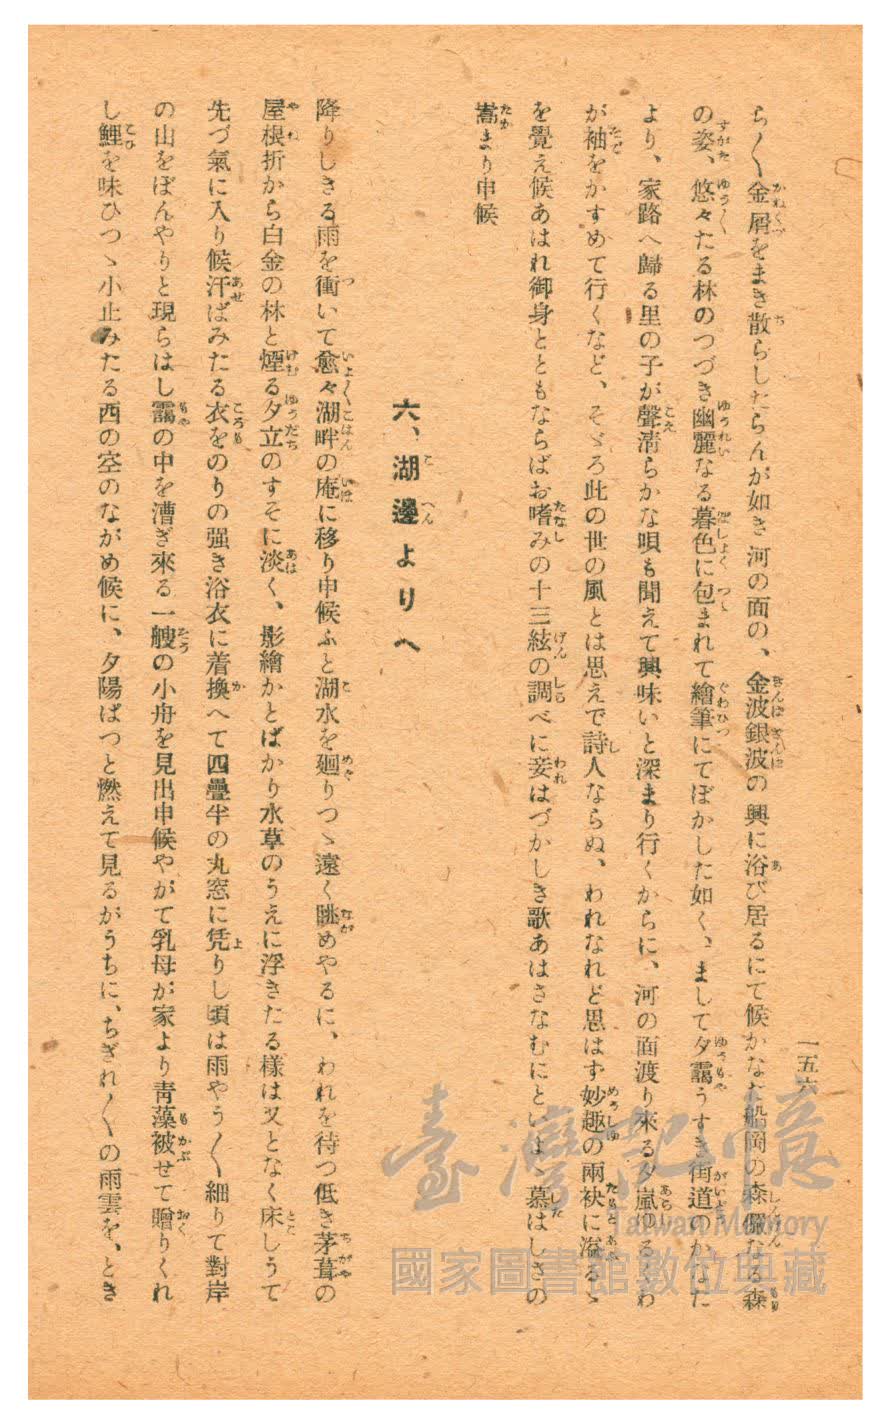 一五六
ら〱金屑をまき散らしたらんが如き河の面の、金波銀波の興に浴び居るにて候かなた船岡の森儼なる森
の姿、悠々たる林のつづき幽麗なる暮色に包まれて繪筆にてぼかした如く、まして夕靄うすき街道のかなた
より、家路へ歸る里の子が聲淸らかな唄も聞えて興味いと深まり行くからに、河の面渡り來る夕嵐ゆるくわ
が袖をかすめて行くなど、そゞろ此の世の風とは思えで詩人ならぬ、われなれど思はず妙趣の兩袂に溢るゝ
を覺え候あはれ御身とともならばお嗜みの十三絃の調べに妾はづかしき歌あはさなむにといよゝ慕はしさの
嵩まり申候
六、湖邊よりへ
降りしきる雨を衝いて愈々湖畔の庵に移り申候ふと湖水を廻りつゝ遠く眺めやるに、われを待つ低き茅葺の
屋根折から白金の林と煙る夕立のすそに淡く、影繪かとばかり水草のうえに浮きたる樣は又となく床しうて
先づ氣に入り候汗ばみたる衣をのりの强き浴衣に着換へて四疊半の丸窓に凭りし頃は雨やう〱細りて對岸
の山をぼんやりと現らはし靄の中を漕ぎ來る一艘の小舟を見出申候やがて乳母が家より靑藻被せて贈りくれ
し鯉を味ひつゝ小止みたる西の空のながめ候に、夕陽ぱつと燃えて見るがうちに、ちぎれ〱の雨雲を、とき
臺灣記憶
Taiwan Memory
國家圖書館數位典藏